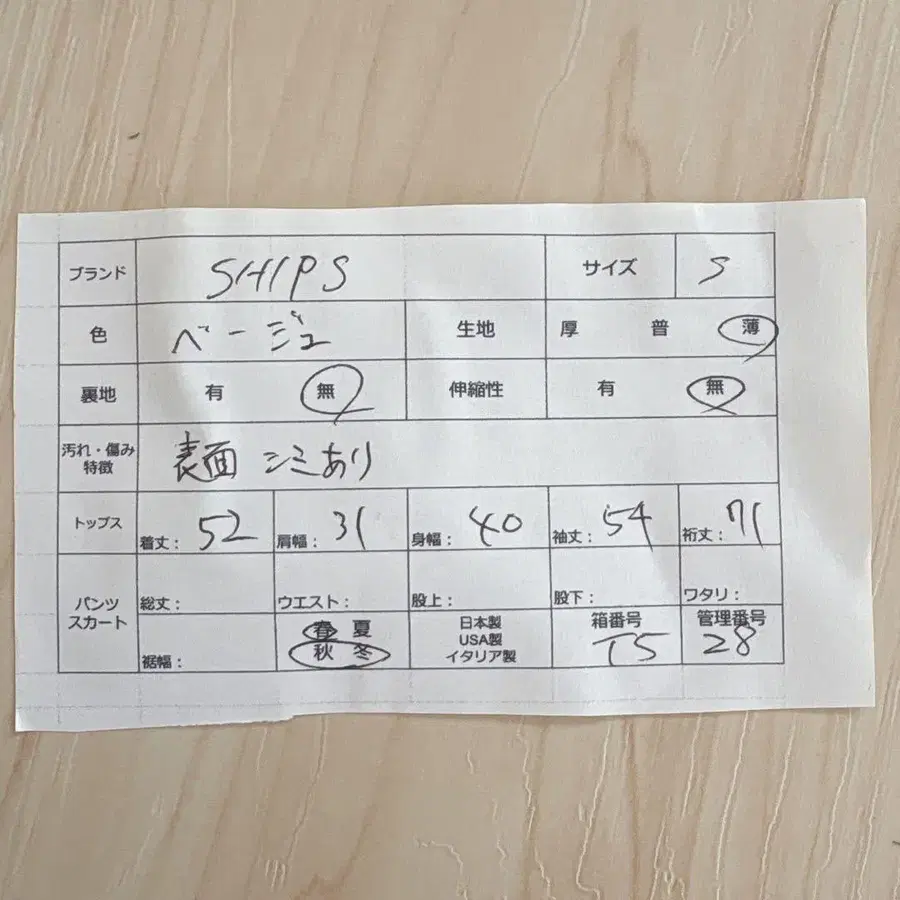 ブランド SHIPS サイズ S
色 ベージュ 生地 厚 普 薄
裏地 有 無 伸縮性 有 無
汚れ・傷み
特徴
表面 シミあり
トップス 着丈: 52 肩幅: 31 身幅: 40 袖丈: 54 裄丈: 71
パンツ
スカート
総丈: ウエスト: 股上: 股下: ワタリ:
裾幅:
春 夏
秋 冬
日本製
USA製
イタリア製
箱番号
T5
管理番号
28